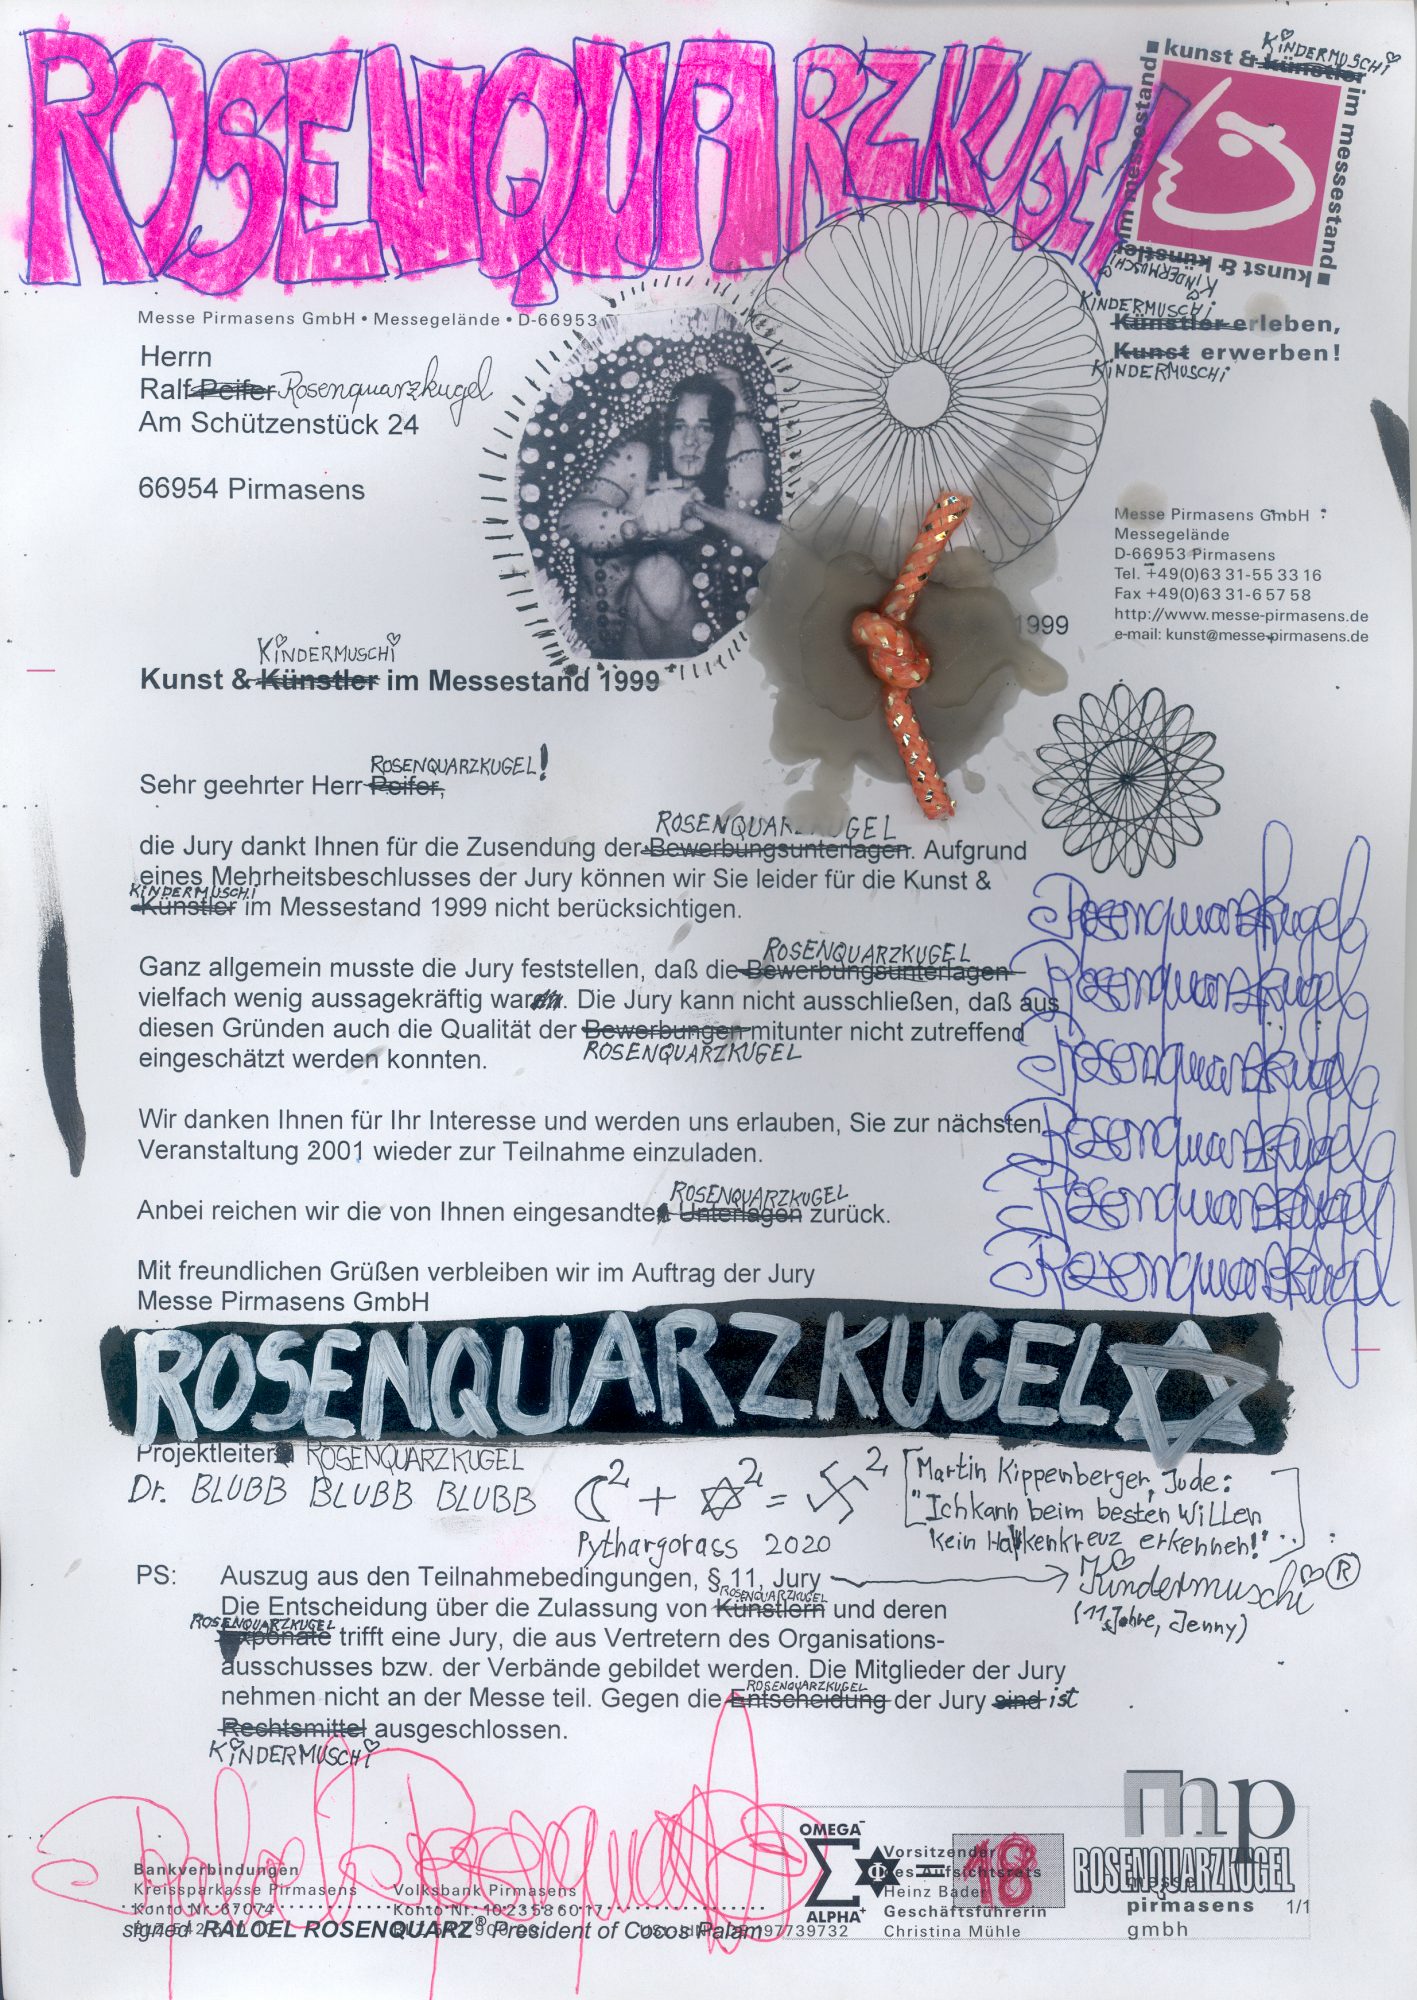 ROSENQUARZKUGEL
KiNDERMUSCHi
kunst & künstler
im messestand
kunst & künstler
im messestand
KiNDERMUSCHi
KiNDERMUSCHi
Künstler erleben,
Kunst erwerben!
KiNDERMUSCHi
Messe Pirmasens GmbH • Messegelände • D-66953
Herrn
Ralf Peifer Rosenquarzkugel
Am Schützenstück 24
66954 Pirmasens
Messe Pirmasens GmbH
Messegelände
D-66953 Pirmasens
Tel. +49(0)63 31-55 33 16
Fax +49(0)63 31-6 57 58
http://www.messe-pirmasens.de
e-mail: kunst@messe-pirmasens.de
1999
KiNDERMUSCHi
Kunst & Künstler im Messestand 1999
ROSENQUARZKUGEL!
Sehr geehrter Herr Peifer,
ROSENQUARZKUGEL
die Jury dankt Ihnen für die Zusendung der Bewerbungsunterlagen. Aufgrund
eines Mehrheitsbeschlusses der Jury können wir Sie leider für die Kunst &
KiNDERMUSCHi
Künstler im Messestand 1999 nicht berücksichtigen.
ROSENQUARZKUGEL
Ganz allgemein musste die Jury feststellen, daß die Bewerbungsunterlagen
vielfach wenig aussagekräftig waren. Die Jury kann nicht ausschließen, daß aus
diesen Gründen auch die Qualität der Bewerbungen mitunter nicht zutreffend
ROSENQUARZKUGEL
eingeschätzt werden konnten.
Wir danken Ihnen für Ihr Interesse und werden uns erlauben, Sie zur nächsten
Veranstaltung 2001 wieder zur Teilnahme einzuladen.
ROSENQUARZKUGEL
Anbei reichen wir die von Ihnen eingesandten Unterlagen zurück.
Mit freundlichen Grüßen verbleiben wir im Auftrag der Jury
Messe Pirmasens GmbH
Rosenquarzkugel
Rosenquarzkugel
Rosenquarzkugel
Rosenquarzkugel
Rosenquarzkugel
Rosenquarzkugel
ROSENQUARZKUGEL
Projektleiterin ROSENQUARZKUGEL
Dr. BLUBB BLUBB BLUBB
☾² + ✡² = 卐²
Pythargorass 2020
[Martin Kippenberger, Jude:
"Ich kann beim besten Willen
kein Hakenkreuz erkennen!"...]
PS: Auszug aus den Teilnahmebedingungen, § 11, Jury
Kindermuschi ®
(11 Jahre, Jenny)
ROSENQUARZKUGEL
Die Entscheidung über die Zulassung von Künstlern und deren
ROSENQUARZKUGEL
Exponate trifft eine Jury, die aus Vertretern des Organisations-
ausschusses bzw. der Verbände gebildet werden. Die Mitglieder der Jury
ROSENQUARZKUGEL
nehmen nicht an der Messe teil. Gegen die Entscheidung der Jury sind ist
Rechtsmittel ausgeschlossen.
KiNDERMUSCHi
mp
ROSENQUARZKUGEL
messe
pirmasens
gmbh
1/1
OMEGA⁻
Σ Φ = 18
ALPHA⁺
Vorsitzender
des Aufsichtsrats
Heinz Bader
Geschäftsführerin
Christina Mühle
Bankverbindungen
Kreissparkasse Pirmasens
Konto Nr. 67074
Volksbank Pirmasens
Konto Nr. 10 23 58 60 17
signed RALOEL ROSENQUARZ® President of Cocos Palam